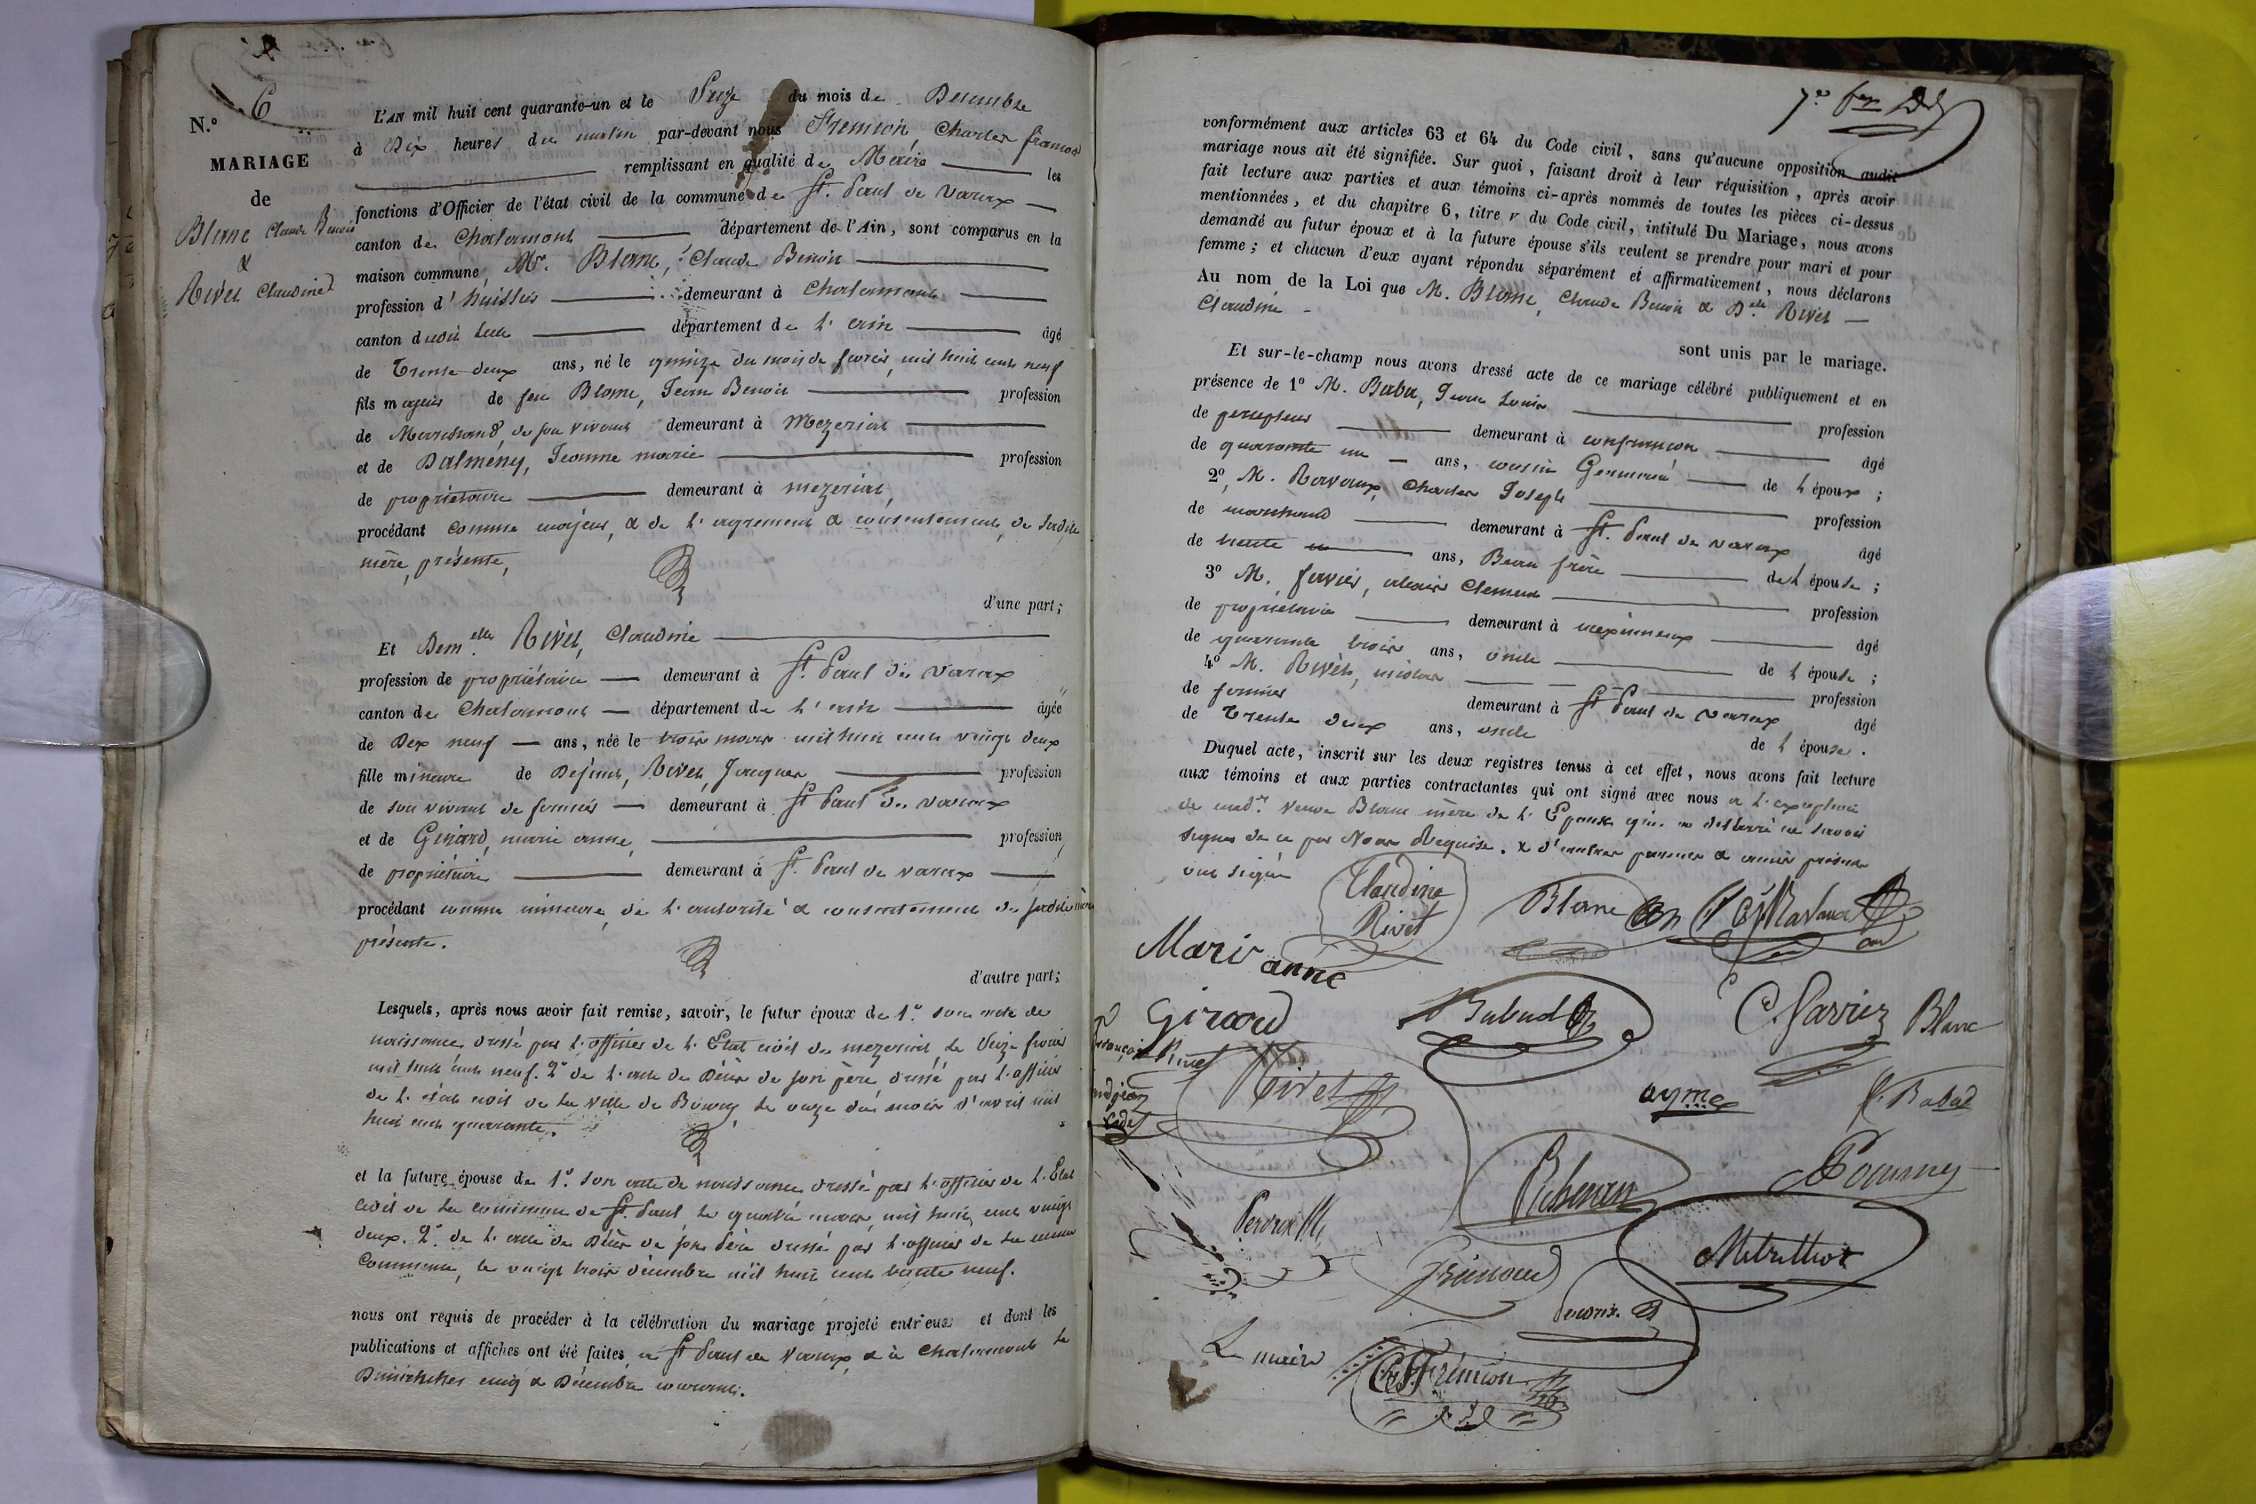 N.º 6
MARIAGE
de
Blanc Claude Benoit
&
Rivet Claudine
L'AN mil huit cent quarante-un et le Seize du mois de Décembre
à Dix heures du matin par-devant nous Frémion Charles françois
remplissant en qualité de Maire les
fonctions d'Officier de l'état civil de la commune de St. Paul de Varax
canton de Chalamont département de l'Ain, sont comparus en la
maison commune, Mr. Blanc, Claude Benoit
profession d'huissier demeurant à Chalamont
canton dudit lieu département de l'ain âgé
de Trente deux ans, né le quinze du mois de fevrier mil huit cent neuf
fils majeur de feu Blanc, Jean Benoit profession
de Marchand, de son vivant demeurant à Mezeriat
et de Dalmeny, Jeanne marie profession
de propriétaire demeurant à mezeriat,
procédant comme majeur, & de l'agrement & consentement de sadite
mère, présente,
d'une part;
Et Dem.elle Rivet, Claudine
profession de propriétaire demeurant à St. Paul de Varax
canton de Chalamont département de l'ain âgée
de Dix neuf ans, née le trois mars mil huit cent vingt deux
fille mineure de Défunt, Rivet, Jacques profession
de son vivant de fermier demeurant à St Paul de varax
et de Girard, marie anne, profession
de propriétaire demeurant à St. Paul de varax
procédant comme mineure, de l'autorité & consentement de sadite mère
présente.
d'autre part;
Lesquels, après nous avoir fait remise, savoir, le futur époux de 1.º son acte de
naissance dressé par l'officier de l'Etat civil de mezeriat le Seize fevrier
mil huit cent neuf. 2º de l'acte de Décès de son père dressé par l'officier
de l'état civil de la ville de Bourg le onze du mois d'avril mil
huit cent quarante.
et la future épouse de 1.º son acte de naissance dressé par l'officier de l'Etat
civil de la commune de St. Paul le quatre mars mil huit cent vingt
deux. 2º de l'acte de Décès de son Père dressé par l'officier de la même
Commune, le vingt trois décembre mil huit cent trente neuf.
nous ont requis de procéder à la célébration du mariage projeté entr'eux et dont les
publications et affiches ont été faites à St Paul de Varax & à Chalamont le
Dimanches cinq & Décembre courant.
7e
conformément aux articles 63 et 64 du Code civil, sans qu'aucune opposition audit
mariage nous ait été signifiée. Sur quoi, faisant droit à leur réquisition, après avoir
fait lecture aux parties et aux témoins ci-après nommés de toutes les pièces ci-dessus
mentionnées, et du chapitre 6, titre V du Code civil, intitulé Du Mariage, nous avons
demandé au futur époux et à la future épouse s'ils veulent se prendre pour mari et pour
femme; et chacun d'eux ayant répondu séparément et affirmativement, nous déclarons
Au nom de la Loi que M. Blanc, Claude Benoit & D.elle Rivet
Claudine
sont unis par le mariage.
Et sur-le-champ nous avons dressé acte de ce mariage célébré publiquement et en
présence de 1º M. Babad, Jean Louis profession
de percepteur demeurant à confrançon âgé
de quarante un ans, cousin Germain de l'époux;
2º, M. Ravaux, Charles Joseph profession
de marchand demeurant à St. Paul de varax âgé
de trente ans, Beau frère de l'épouse;
3º M. favier, Clement profession
de propriétaire demeurant à meximieux âgé
de quarante trois ans, oncle de l'épouse;
4º M. Rivet, nicolas profession
de fermier demeurant à St Paul de varax âgé
de Trente deux ans, oncle de l'épouse.
Duquel acte, inscrit sur les deux registres tenus à cet effet, nous avons fait lecture
aux témoins et aux parties contractantes qui ont signé avec nous à l'exception
de mad.e Veuve Blanc mère de l'Epoux qui a déclaré ne savoir
signer de ce par Nous Requise. & d'autres parents & amis présents
ont signé
Claudine
Rivet
Blanc
Ravaux
Marie anne
Girard
Babad
C. Favier
Blanc
françois Rivet
Rivet
aymé
Babad
Le maire
Ch. F. Frémion